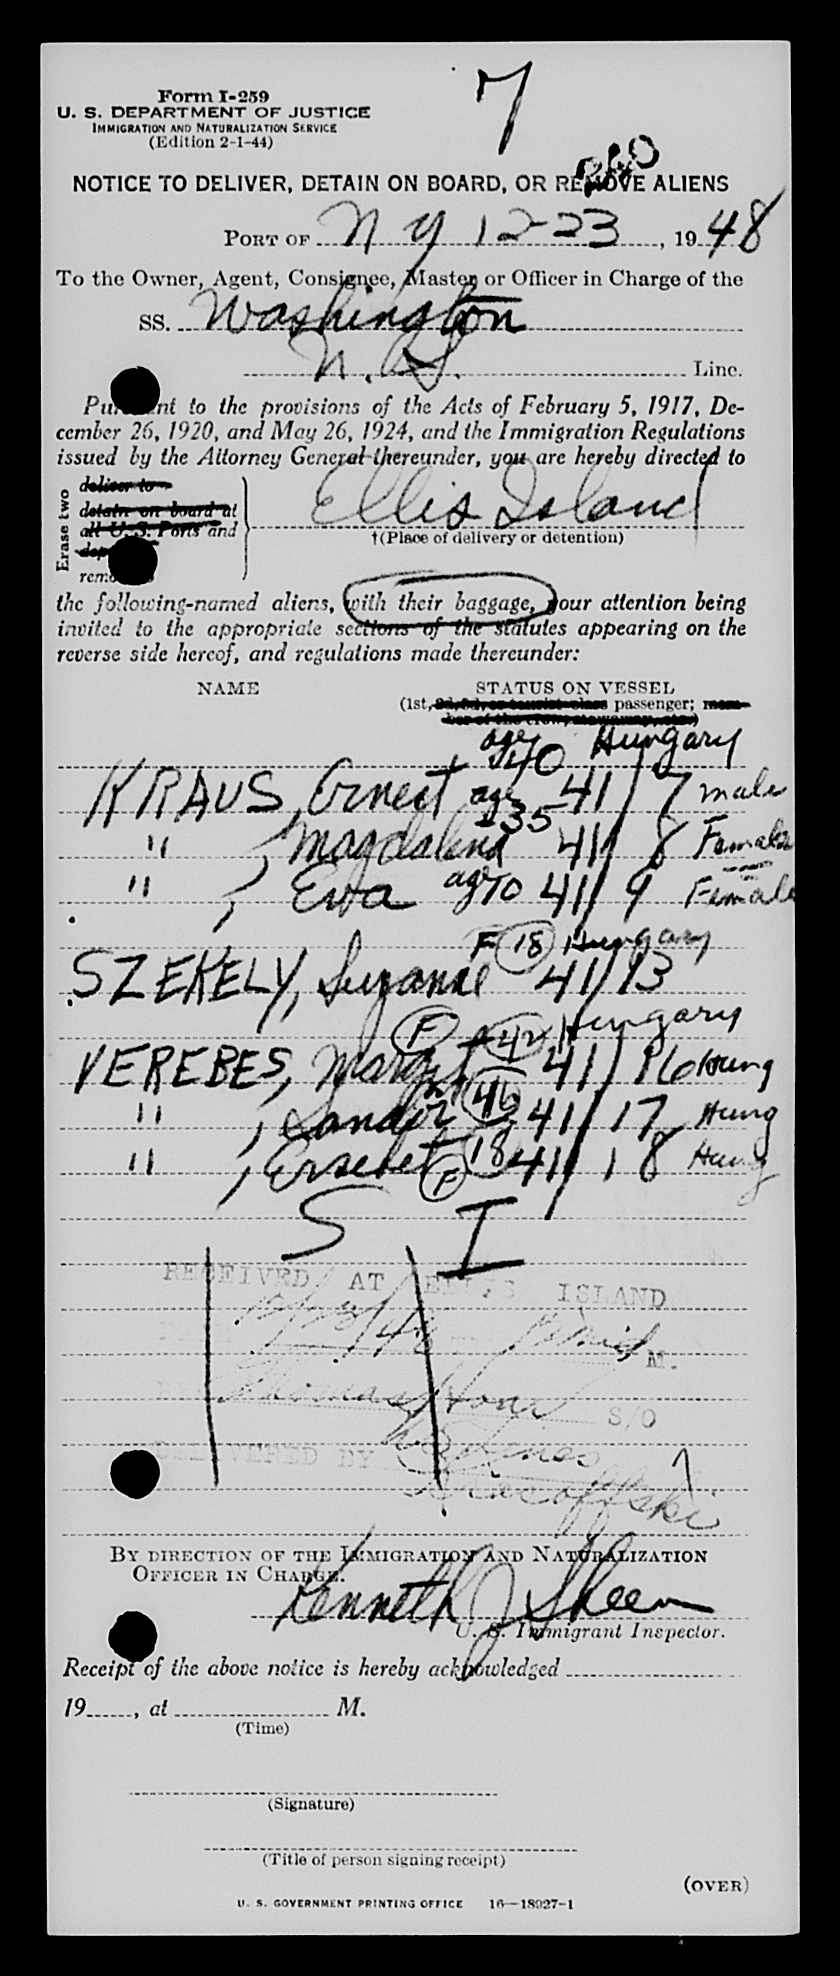 Form I-259
7
U. S. DEPARTMENT OF JUSTICE
IMMIGRATION AND NATURALIZATION SERVICE
(Edition 2-1-44)
NOTICE TO DELIVER, DETAIN ON BOARD, OR REMOVE ALIENS
PORT OF N Y 12-23, 1948
To the Owner, Agent, Consignee, Master or Officer in Charge of the
SS. Washington
U. S. Line.
Pursuant to the provisions of the Acts of February 5, 1917, De-
cember 26, 1920, and May 26, 1924, and the Immigration Regulations
issued by the Attorney General thereunder, you are hereby directed to
Erase two
deliver to
detain on board at
all U. S. Ports and
remove
Ellis Island
†(Place of delivery or detention)
the following-named aliens, with their baggage, your attention being
invited to the appropriate sections of the statutes appearing on the
reverse side hereof, and regulations made thereunder:
NAME STATUS ON VESSEL
(1st, 2d, 3d, or tourist class passenger; mem-
ber of the crew, stowaway, etc.)
age 40 Hungary
KRAUS, Ernest 41/7 male
age 35
" , Magdalena 41/8 Female
" , Eva age 10 41/9 Female
F 18 Hungary
SZEKELY, Suzanne 41/13
F 42 Hungary
VEREBES, Margit 41/16 Hung
" , Sandor 46 41/17 Hung
" , Erzsebet F 18 41/18 Hung
S I
RECEIVED AT ELLIS ISLAND
12/23/48 M.
Thomas S/O
DELIVERED BY
BY DIRECTION OF THE IMMIGRATION AND NATURALIZATION
OFFICER IN CHARGE.
Kenneth J Sheen
U. S. Immigrant Inspector.
Receipt of the above notice is hereby acknowledged
19 , at M.
(Time)
(Signature)
(Title of person signing receipt)
(OVER)
U. S. GOVERNMENT PRINTING OFFICE 16—18027-1